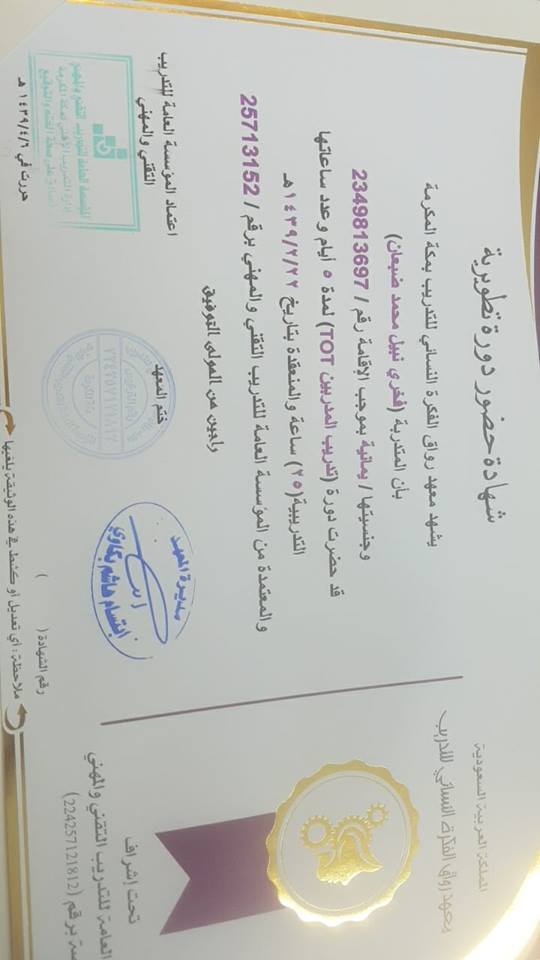 المملكة العربية السعودية
معهد رواق الفكرة النسائي للتدريب
تحت إشراف
العامة للتدريب التقني والمهني
سة برقم (224257121812)
شهادة حضور دورة تطويرية
يشهد معهد رواق الفكرة النسائي للتدريب بمكة المكرمة
بأن المتدربة (فخري نبيل محمد ضبعان)
وجنسيتها / يمانية بموجب الاقامة رقم / 2349813697
قد حضرت دورة (تدريب المدربين TOT) لمدة ٥ أيام وعدد ساعاتها
التدريبية (٢٥) ساعة والمنعقدة بتاريخ ١٤٣٩/٢/٢٢هـ
والمعتمدة من المؤسسة العامة للتدريب التقني والمهني برقم / 25713152
راجين من المولى التوفيق
مديرة المعهد
ابتسام هاشم بكاوي
ختم المعهد
اعتماد المؤسسة العامة للتدريب
التقني والمهني
المؤسسة العامة للتدريب التقني والمهني
إدارة التدريب الأهلي بمكة المكرمة
نصادق على صحة الختم والتوقيع
حررت في ١٤٣٩/٤/٦ هـ
رقم الشهادة ( )
ملاحظة : أي تعديل أو كشط في هذه الوثيقة يلغيها